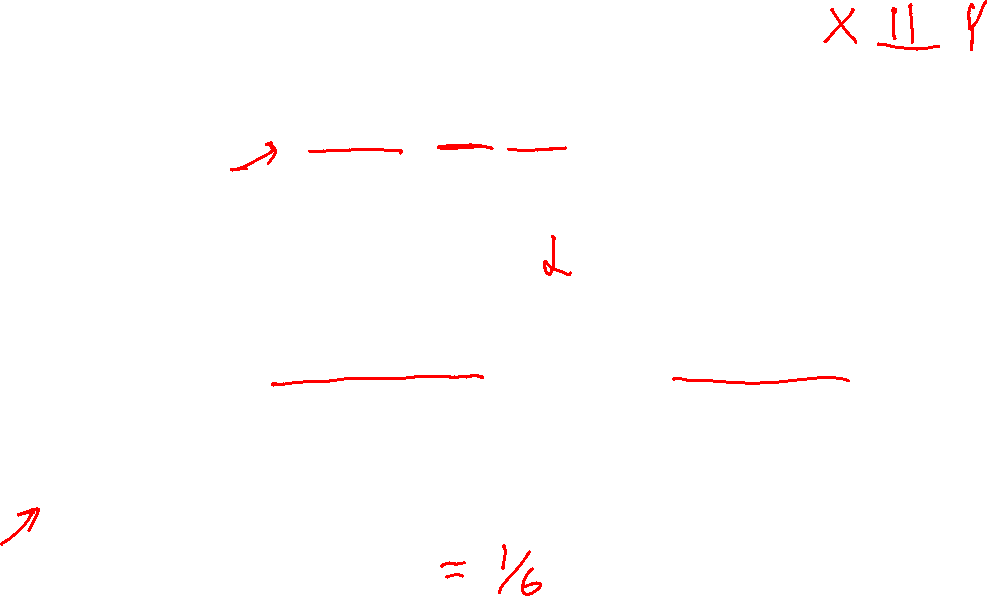 X ⫫ Y
d
= 1/6